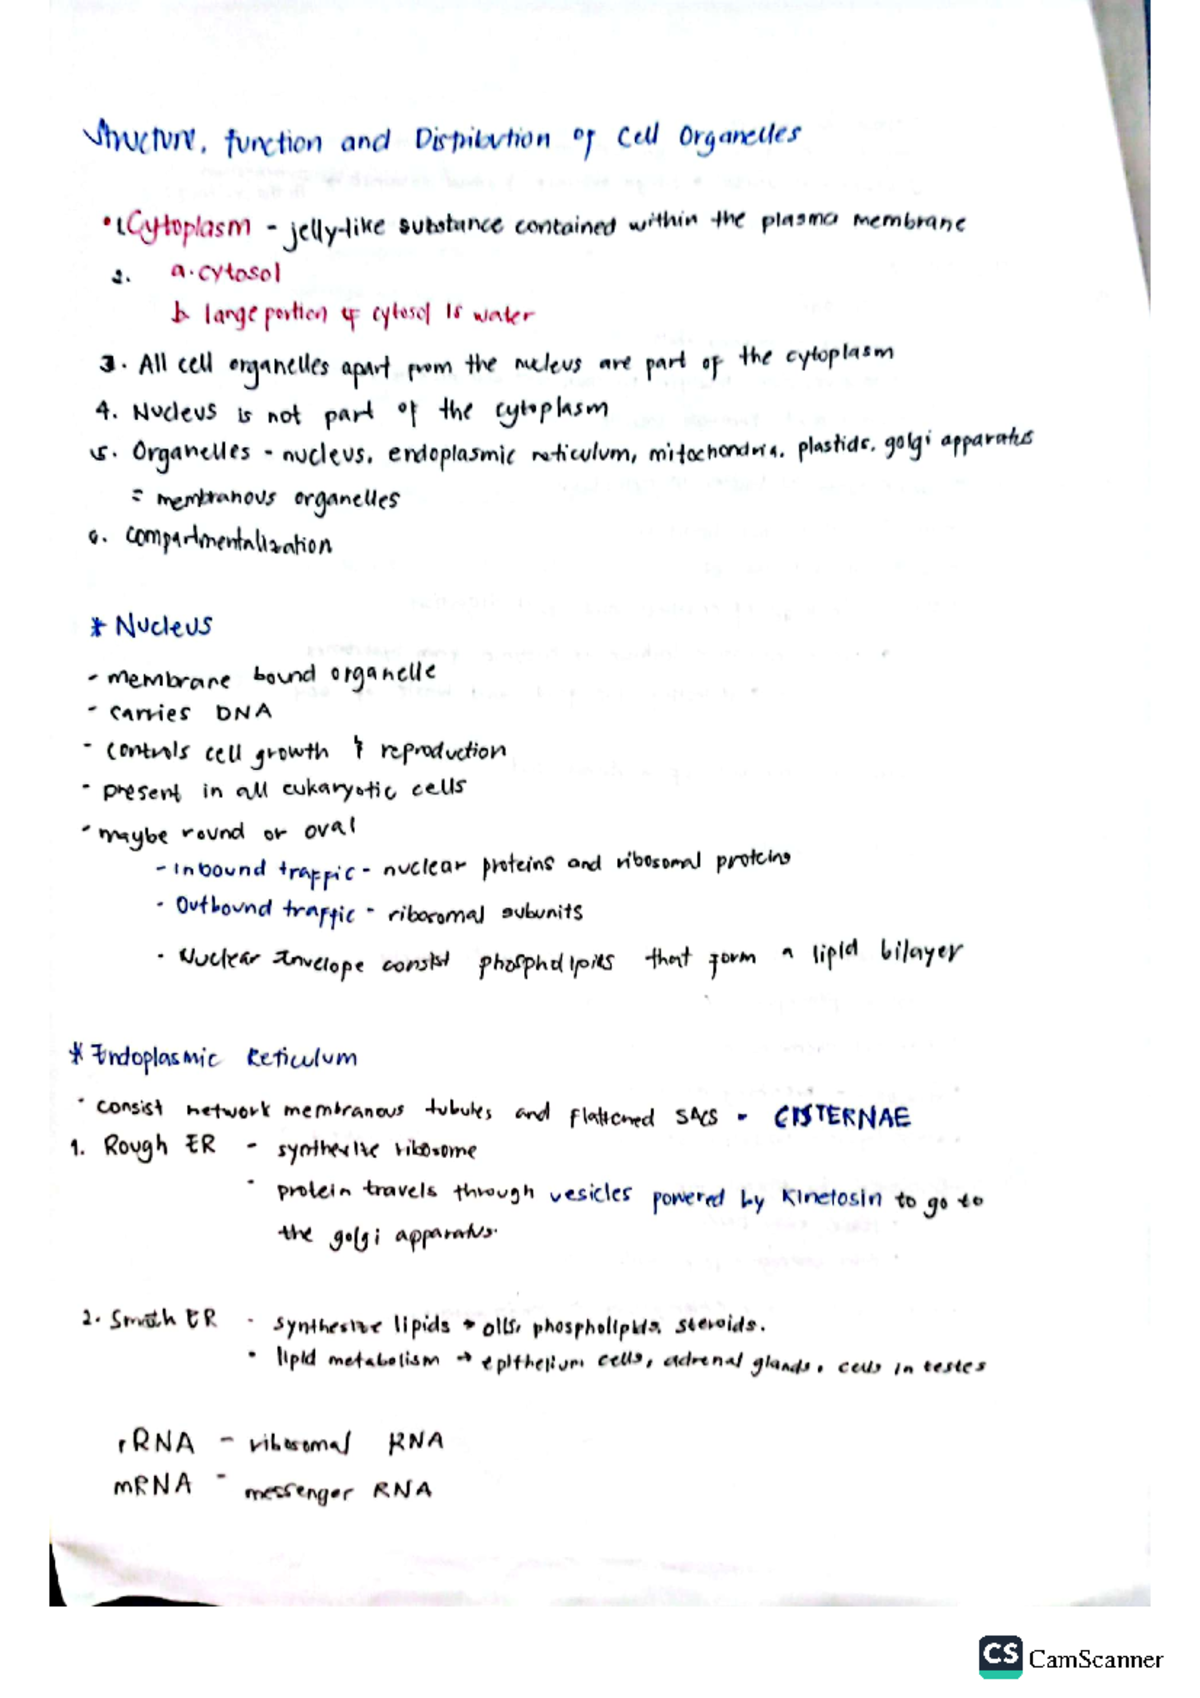 Structure, function and Distribution of Cell Organelles
• 1. Cytoplasm - jelly-like substance contained within the plasma membrane
2. a. cytosol
b large portion of cytosol is water
3. All cell organelles apart from the nucleus are part of the cytoplasm
4. Nucleus is not part of the cytoplasm
5. Organelles - nucleus, endoplasmic reticulum, mitochondria, plastids, golgi apparatus
= membranous organelles
6. compartmentalization
* Nucleus
- membrane bound organelle
- carries DNA
- controls cell growth & reproduction
- present in all eukaryotic cells
- maybe round or oval
- Inbound traffic - nuclear proteins and ribosomal proteins
- Outbound traffic - ribosomal subunits
- Nuclear Envelope consist phospholipids that form a lipid bilayer
* Endoplasmic Reticulum
- consist network membranous tubules and flattened SACS - CISTERNAE
1. Rough ER - synthesize ribosome
- protein travels through vesicles powered by Kinetosin to go to
the golgi apparatus.
2. Smooth ER - synthesize lipids → oils, phospholipids, steroids.
- lipid metabolism → epithelium cells, adrenal glands, cells in testes
rRNA - ribosomal RNA
mRNA - messenger RNA
CS CamScanner